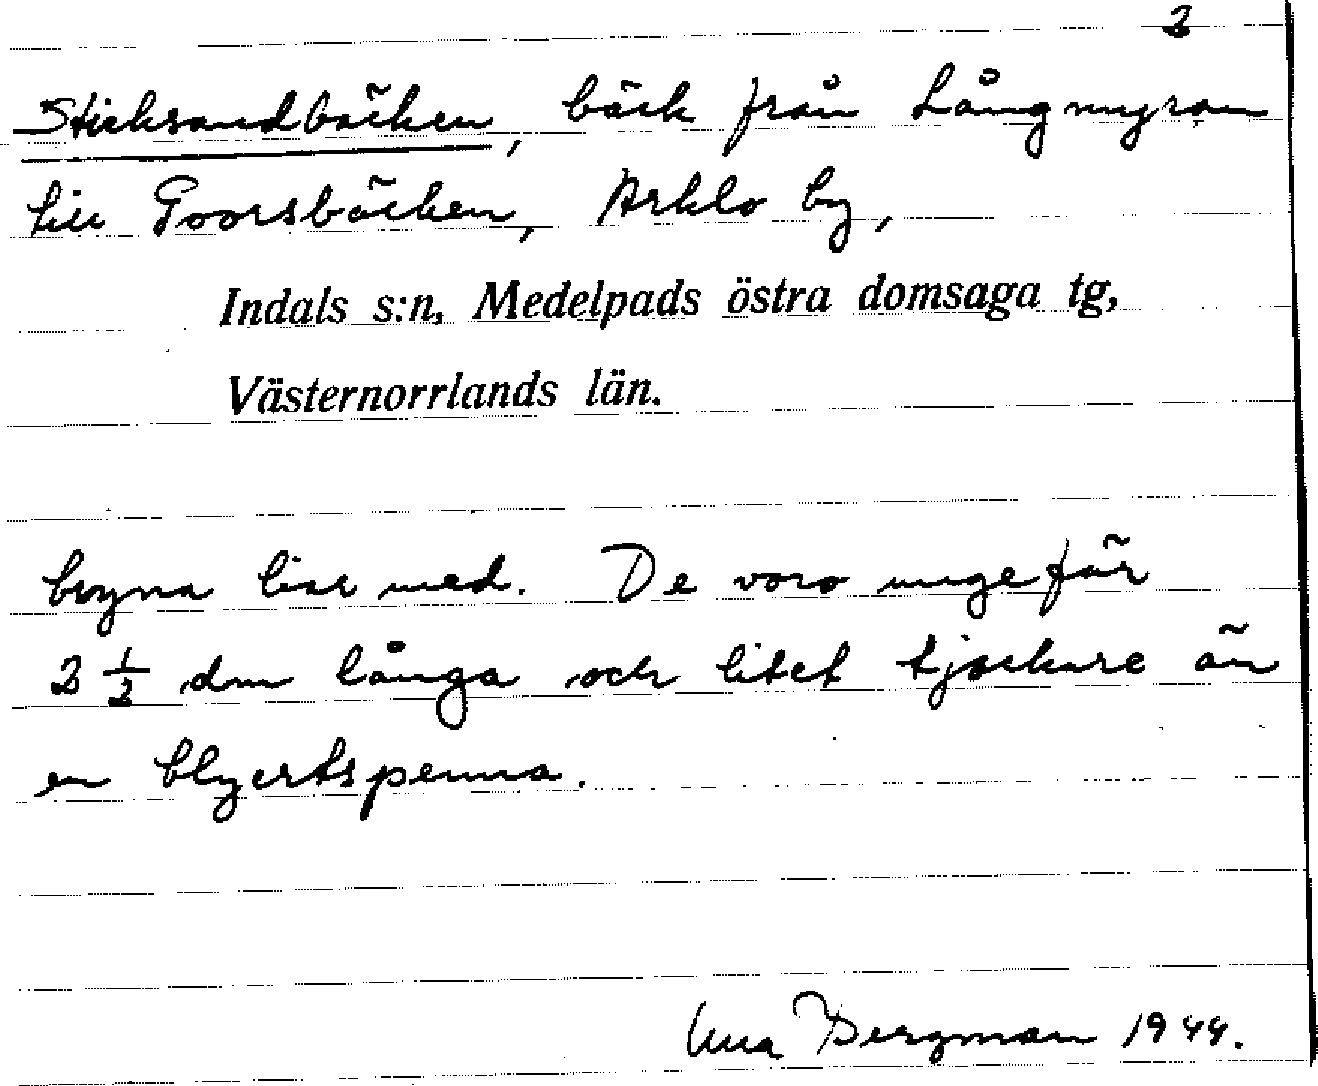 2
Sticksandbäcken, bäck från Långmyran
till Toorsbäcken, Arklo by,
Indals s:n, Medelpads östra domsaga tg,
Västernorrlands län.
bryna liar med. De voro ungefär
2 1/2 dm långa och litet tjockare än
en blyertspenna.
Bergman 1944.